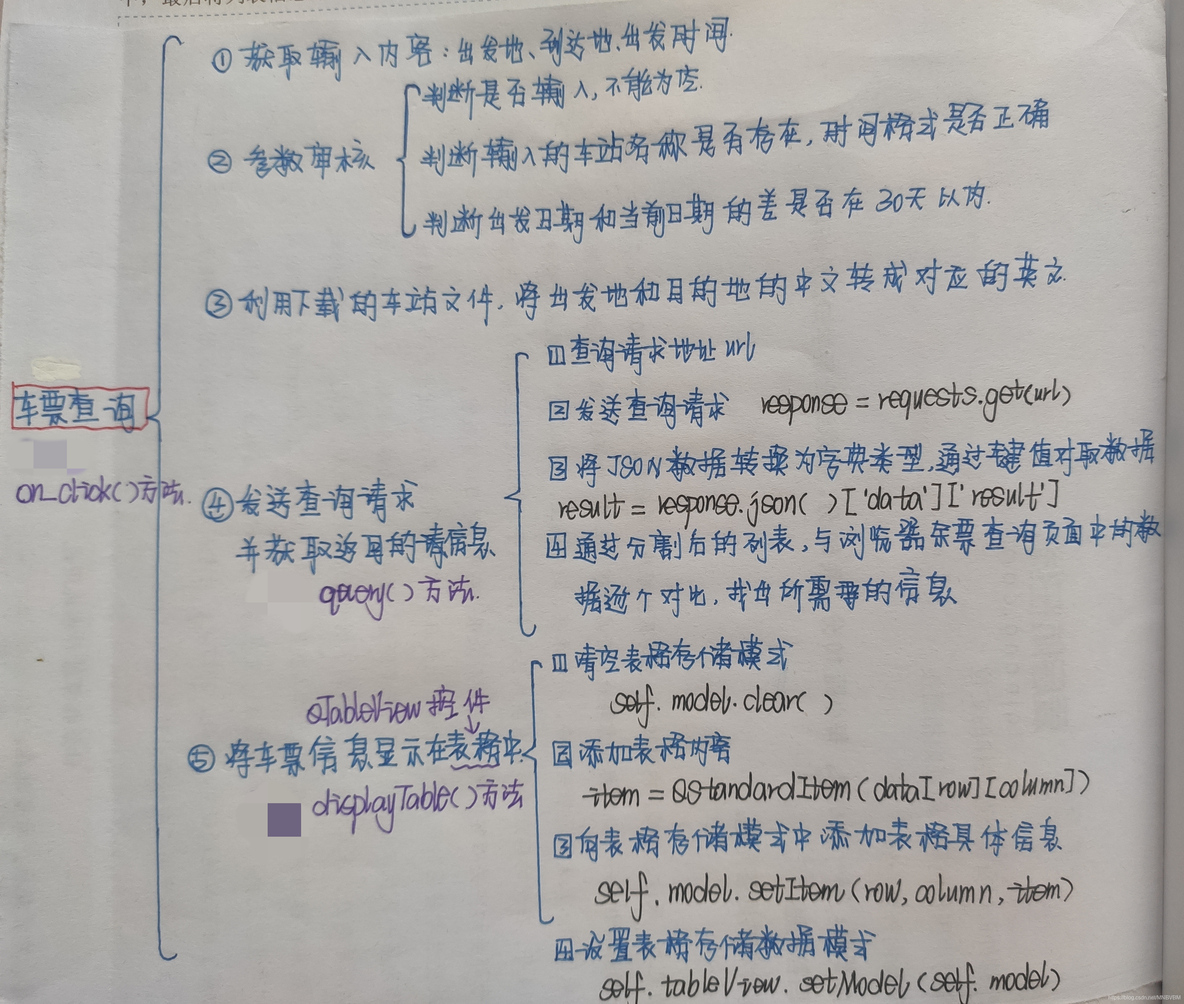 ① 获取输入内容：出发地、到达地、出发时间.
判断是否输入，不能为空.
② 参数审核
判断输入的车站名称是否存在，时间格式是否正确
判断出发日期和当前日期的差是否在30天以内.
③ 利用下载的车站文件，将出发地和目的地的中文转成对应的英文.
车票查询
on_click()方法.
④ 发送查询请求
并获取返回的请信息
query()方法.
1 查询请求地址url
2 发送查询请求 response = requests.get(url)
3 将JSON数据转换为字典类型，通过键值对取数据
result = response.json( )['data']['result']
4 通过分割后的列表，与浏览器车票查询页面中的数
据逐个对比，找出所需要的信息
QTableView控件
⑤ 将车票信息显示在表格中
displayTable()方法
1 清空表格存储模式
self.model.clear( )
2 添加表格内容
item = QStandardItem(data[row][column])
3 向表格存储模式中添加表格具体信息
self.model.setItem(row,column,item)
4 设置表格存储数据模式
self.tableView.setModel(self.model)